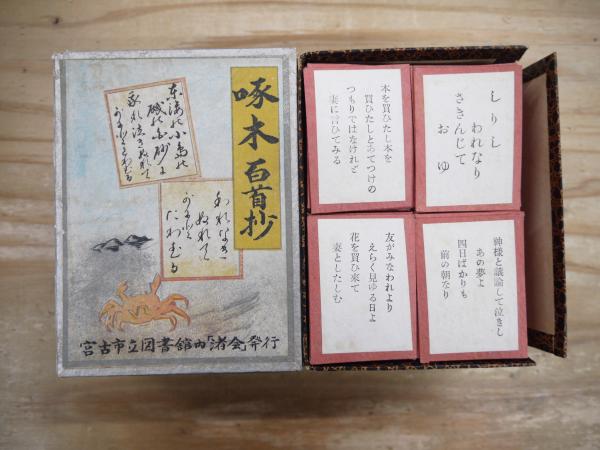 啄木百首抄
東海の小島の
磯の白砂に
我れ泣きぬれて
かにとたわむる
われなき
ぬれて
かにと
たわむる
宮古市立図書館内「渚会発行
しりし
われなり
さきんじて
おゆ
本を買ひたし本を
買ひたしとあてつけの
つもりではなけれど
妻に言ひてみる
神様と議論して泣きし
あの夢よ
四日ばかりも
前の朝なり
友がみなわれより
えらく見ゆる日よ
花を買ひ来て
妻としたしむ